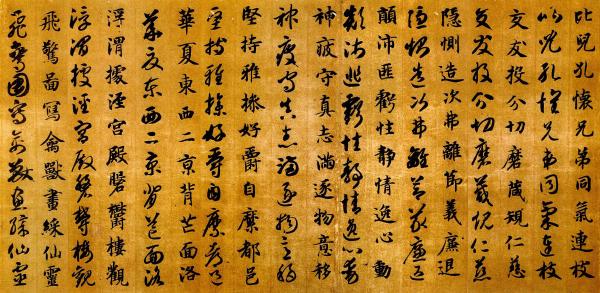 比兒孔懷兄弟同氣連枝
比兒孔懷兄弟同氣連枝
交友投分切磨箴規仁慈
交友投分切磨箴規仁慈
隱惻造次弗離節義廉退
隱惻造次弗離節義廉退
顛沛匪虧性靜情逸心動
顛沛匪虧性靜情逸心動
神疲守真志滿逐物意移
神疲守真志滿逐物意移
堅持雅操好爵自縻都邑
堅持雅操好爵自縻都邑
華夏東西二京背芒面洛
華夏東西二京背芒面洛
浮渭據涇宮殿磐鬱樓觀
浮渭據涇宮殿磐鬱樓觀
飛驚啚寫禽獸畫綵仙靈
飛驚圖寫禽獸畫綵仙靈